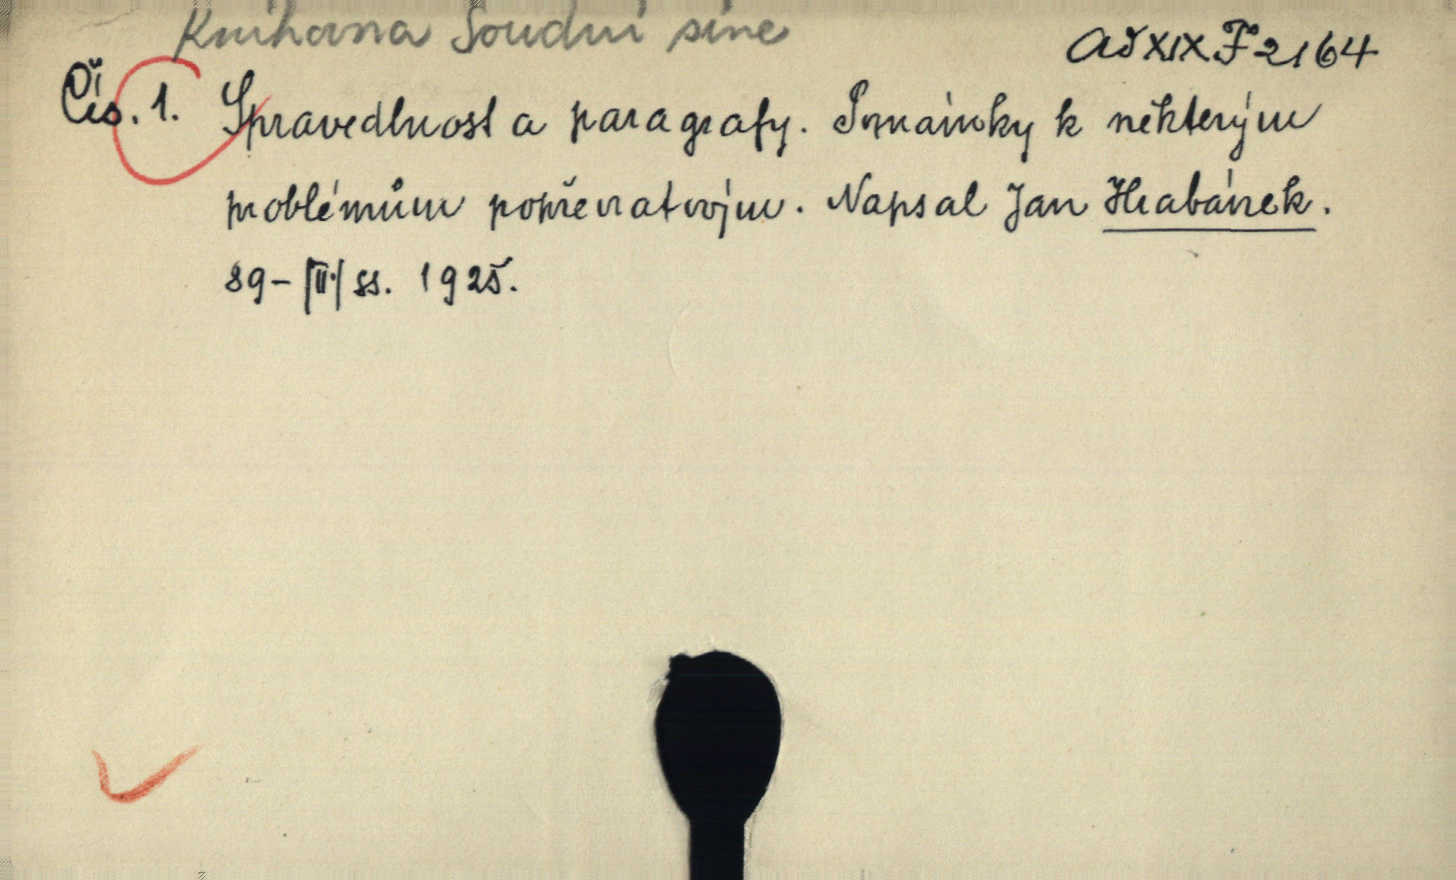 Knihovna Soudní síně
Ad XIX F 2164
Čís. 1. Spravedlnost a paragrafy. Poznámky k některým
problémům popřevratovým. Napsal Jan Hrabánek.
89 – [II.] ss. 1925.